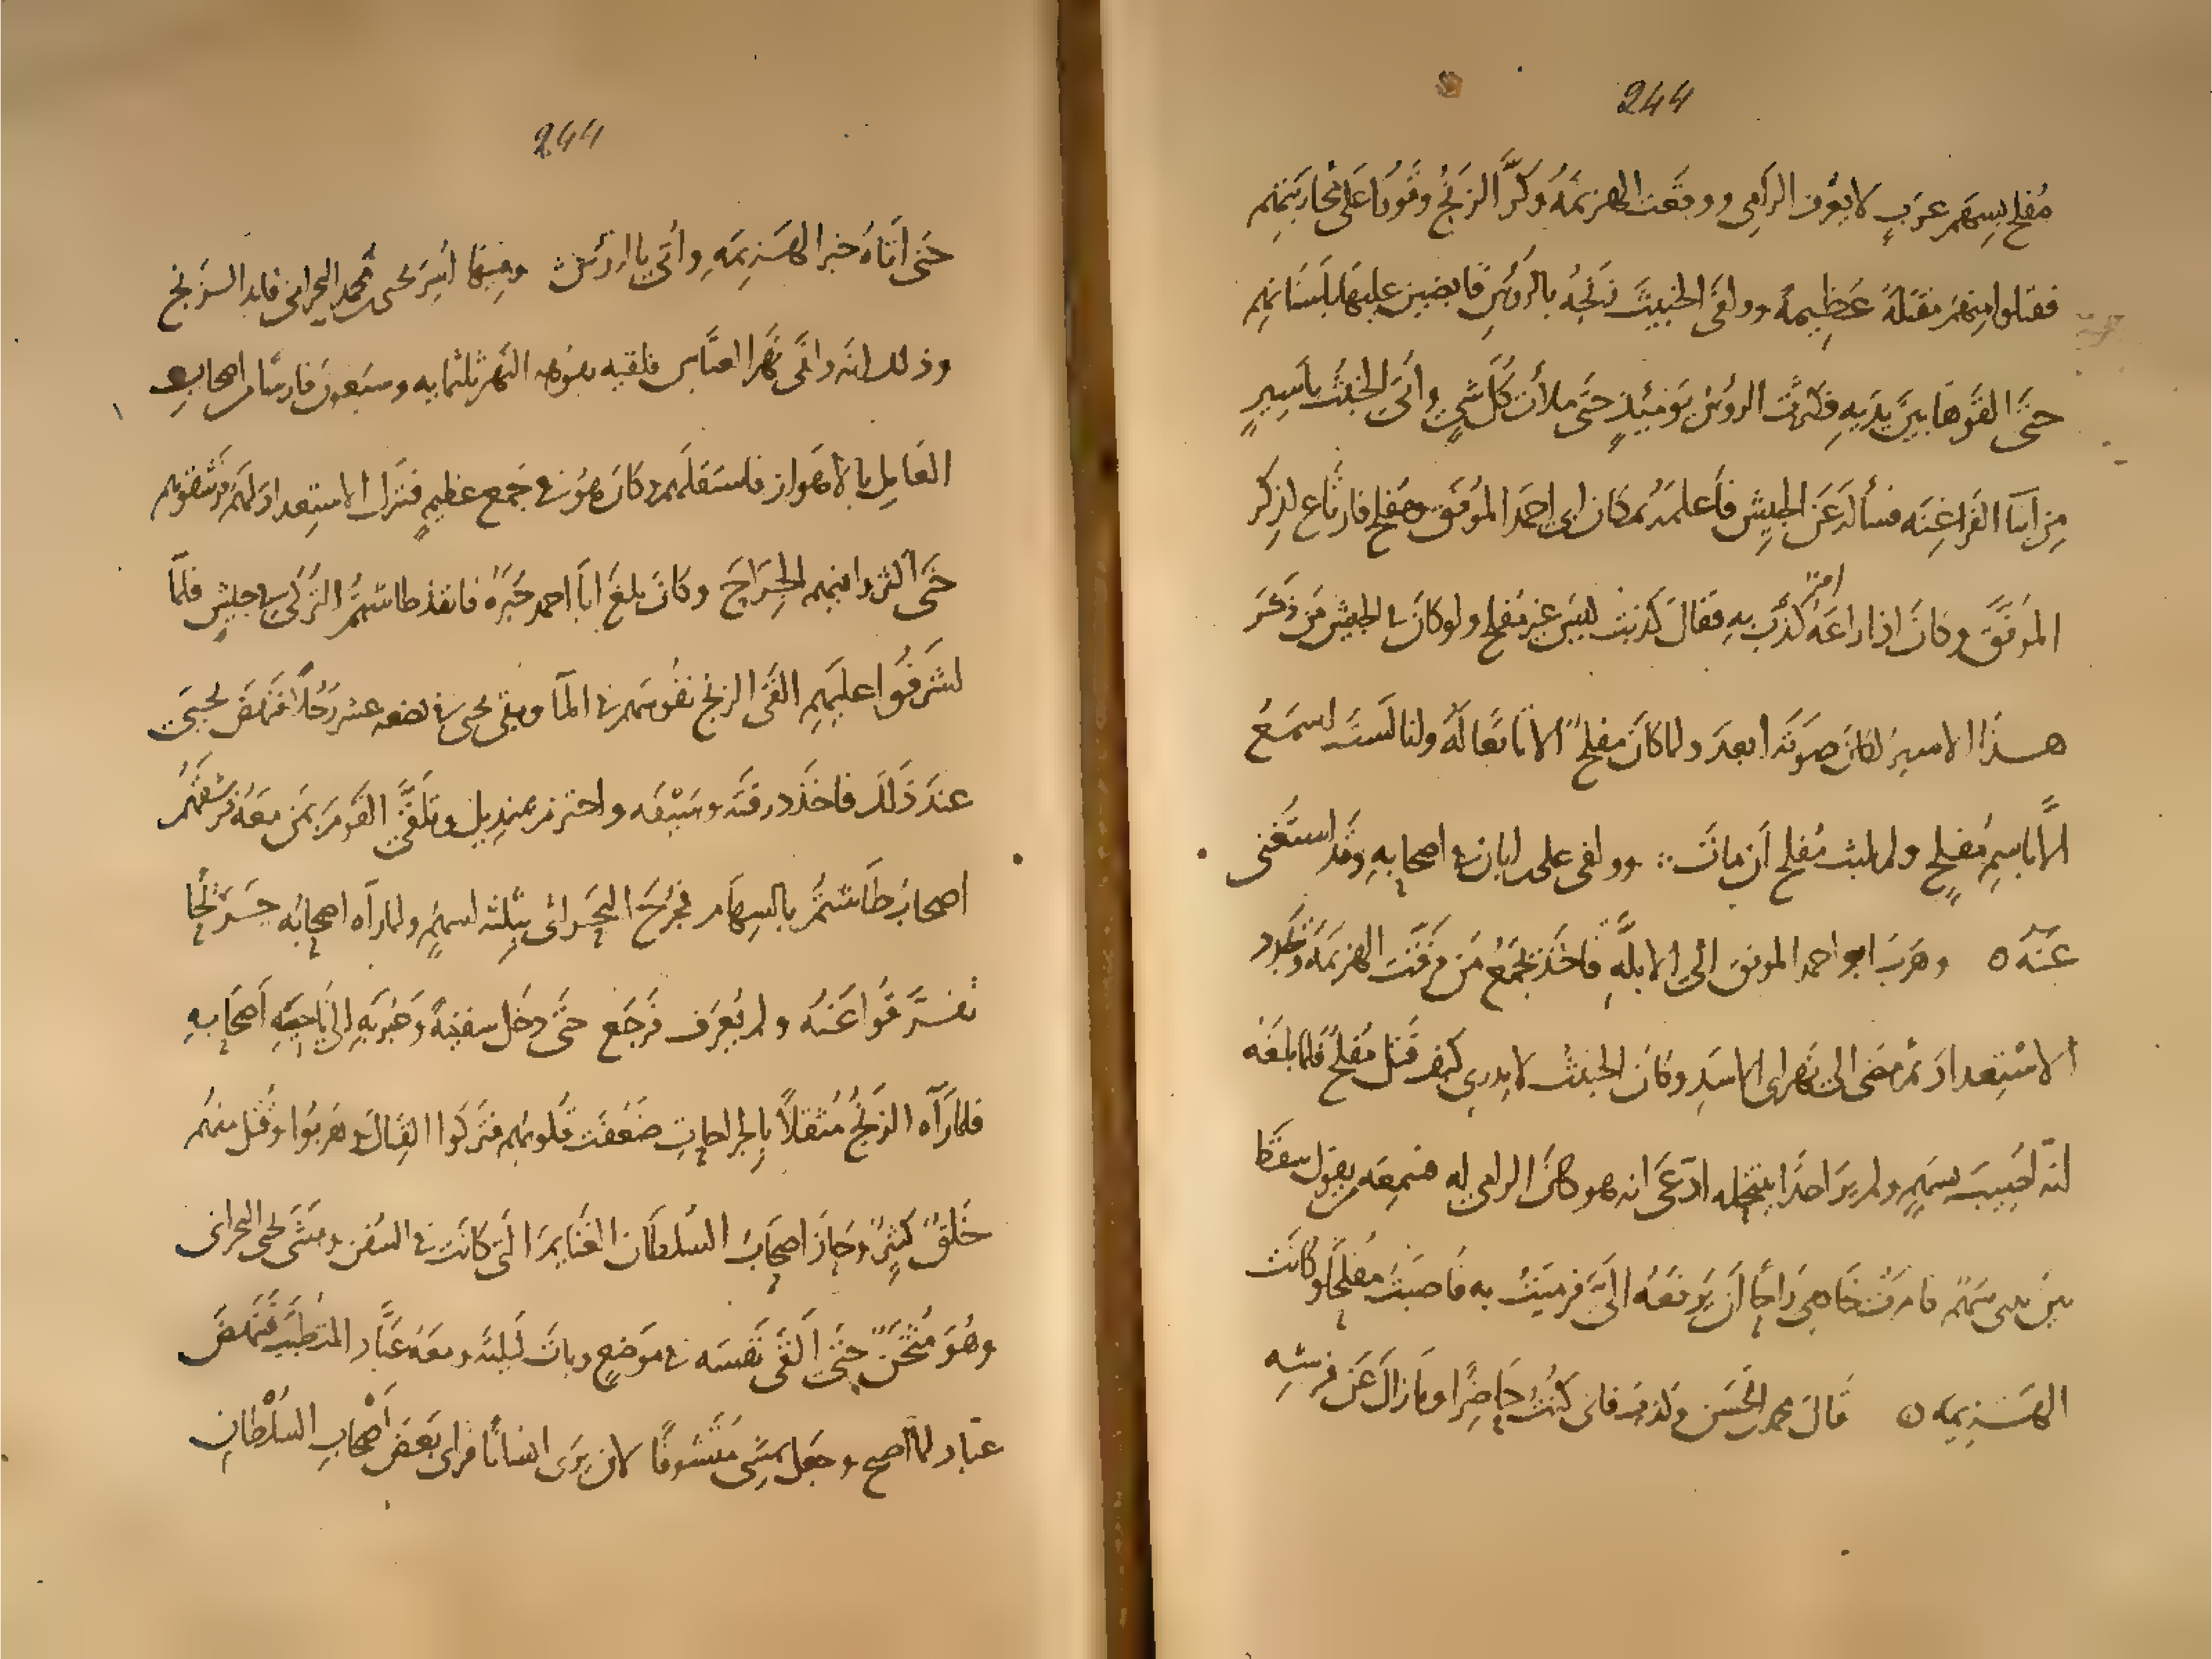 244
مُفلح بسهم غرب لا يعرف الرامى ووقعت الهزيمَة وكرَّ الزنج وقووا على محاربتهم
فقتلوا منهم مقتلة عظيمة ووافى الخبيث زنجه بالرؤس قابضين عليها باسنانهم
حتى القوها بين يديه فكثرت الرؤس يومئذٍ حتى ملأت كل شىٍ واتى الخبيث باسيرٍ
من ابنا الفراغنه فسأله عن الجيش فأعلمه بمكان ابى احمد الموفق ومفلح فارتاع لذكر
الموفق وكان اذا راعه امرٌ كذّب به فقال كذبت ليس غير مفلح ولو كان فى الجيش من ذكر
هذا الاسير لكان صوته ابعد ولما كان مفلح الا تابعًا له ولنا لست اسمع
الّا باسم مُفلحٍ ولم يلبث مُفلح أن مات ووافى على ابان فى اصحابه وقد استغنى
عنه ٥ وهرب ابو احمد الموفق الى الابلّه فاخذ بجمع من فرقت الهزيمَة ويجدد
الاستعداد ثم مضى الى نهر ابى الاسد وكان الخبيث لا يدرى كيف قتل مفلح فلما بلغه
انه اصيب بسهمٍ ولم ير احدًا ينتحله ادّعى انه هو كان الرامى له فسمعه يقول سقط
بين يدى سهم فامرت خادمى راحا ان يدفعه الىّ فرميت به فاصبت مفلحًا وكانت
الهزيمه ٥ قال محمد بن الحسن وكذب فانى كنتُ حاضرًا وما زال عن فرسه
244
حتى أتاهُ خبر الهزيمَةِ وأتى بالرؤس وفيها اُسِرَ يحيى بن محمد البحرانى قايد الزنج
وذلك انه وافى نهر العباس فلقيه بفوهه النهر ثلثمايه وسبعون فارسًا من اصحاب
العامِل بالاهواز فاستقلهم وكان هو فى جَمعٍ عظيمٍ فترك الاستعداد لهم فرشقوهم
حتى اكثروا فيهم الجراح وكان بلغ ابا احمد خبره فانفذ طاشتمر التركى فى جيشٍ فلمّا
اشرفوا عليهم القى الزنج نفوسهم فى المآ وبقى يحيى فى بضعه عشر رجُلاً فنهض يحيى
عند ذلك فاخذ درقته وسيفه واحتزم بمنديل وتلقى القوم بمن معه فرشقهم
اصحاب طاشتمر بالسهام فجرح البحرانى بثلثه اسهم ولما رآه اصحابه جريحًا
تفرقوا عنه ولم يعرف فرجع حتى دخل سفينة وعبر به الى ناحيه اصحابه
فلما رآه الزنج مثقلًا بالجراحات ضعفت قلوبهم فتركوا القتال وهربوا وقتل منهم
خلق كثيرٌ وحاز اصحاب السلطان الغنايم التى كانت فى السفن ومشى يحيى البحرانى
وهو مثخن حتى القى نفسه فى موضعٍ وبات ليلته ومعه عبّاد المتطبب فنهض
عباد لما اصبح وجعل يمشى متشوفًا لان يرى انسانًا فراى بعض اصحاب السلطان